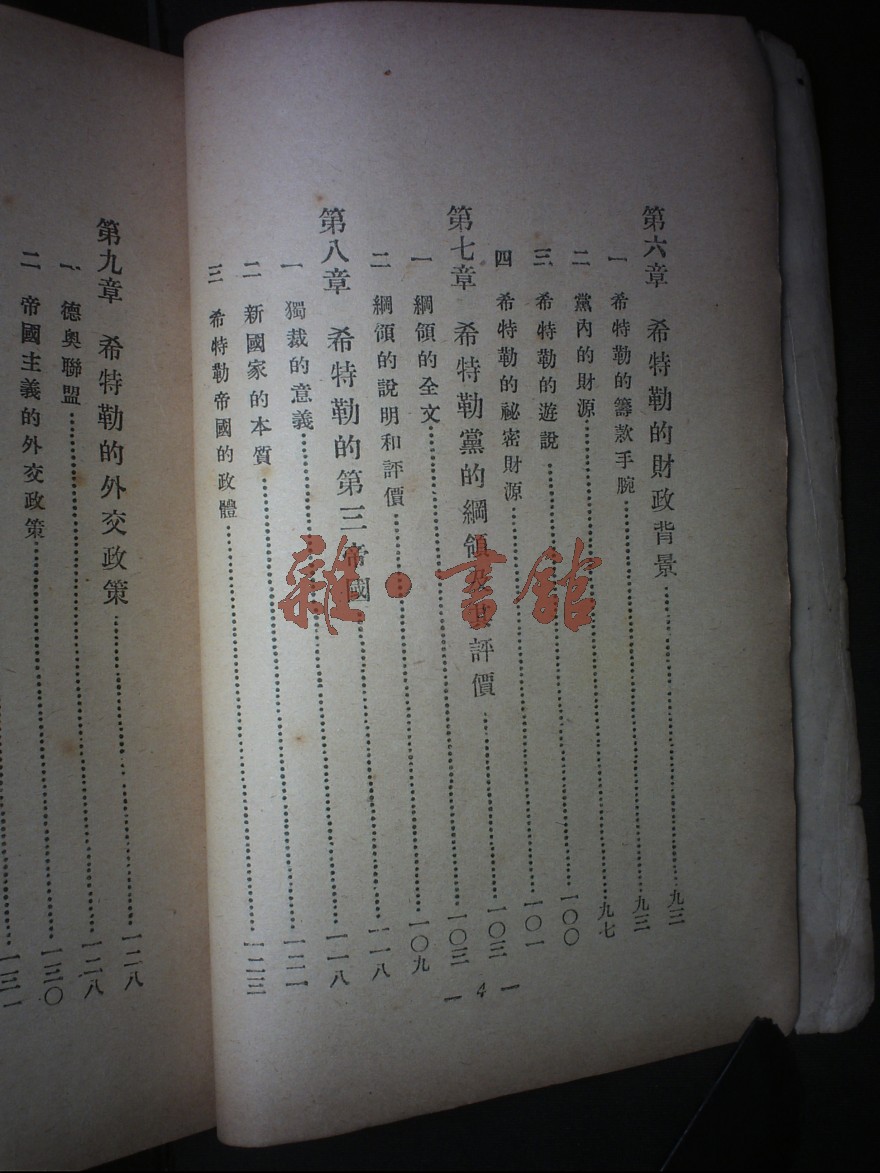 第六章 希特勒的財政背景……九三
一 希特勒的籌款手腕……九三
二 黨內的財源……九七
三 希特勒的遊說……一〇〇
四 希特勒的祕密財源……一〇一
第七章 希特勒黨的綱領及其評價……一〇三
一 綱領的全文……一〇三
二 綱領的說明和評價……一〇九
第八章 希特勒的第三帝國……一一八
一 獨裁的意義……一一八
二 新國家的本質……一二一
三 希特勒帝國的政體……一二三
— 4 —
第九章 希特勒的外交政策……一二八
一 德奧聯盟……一二八
二 帝國主義的外交政策……一三〇
雜·書館